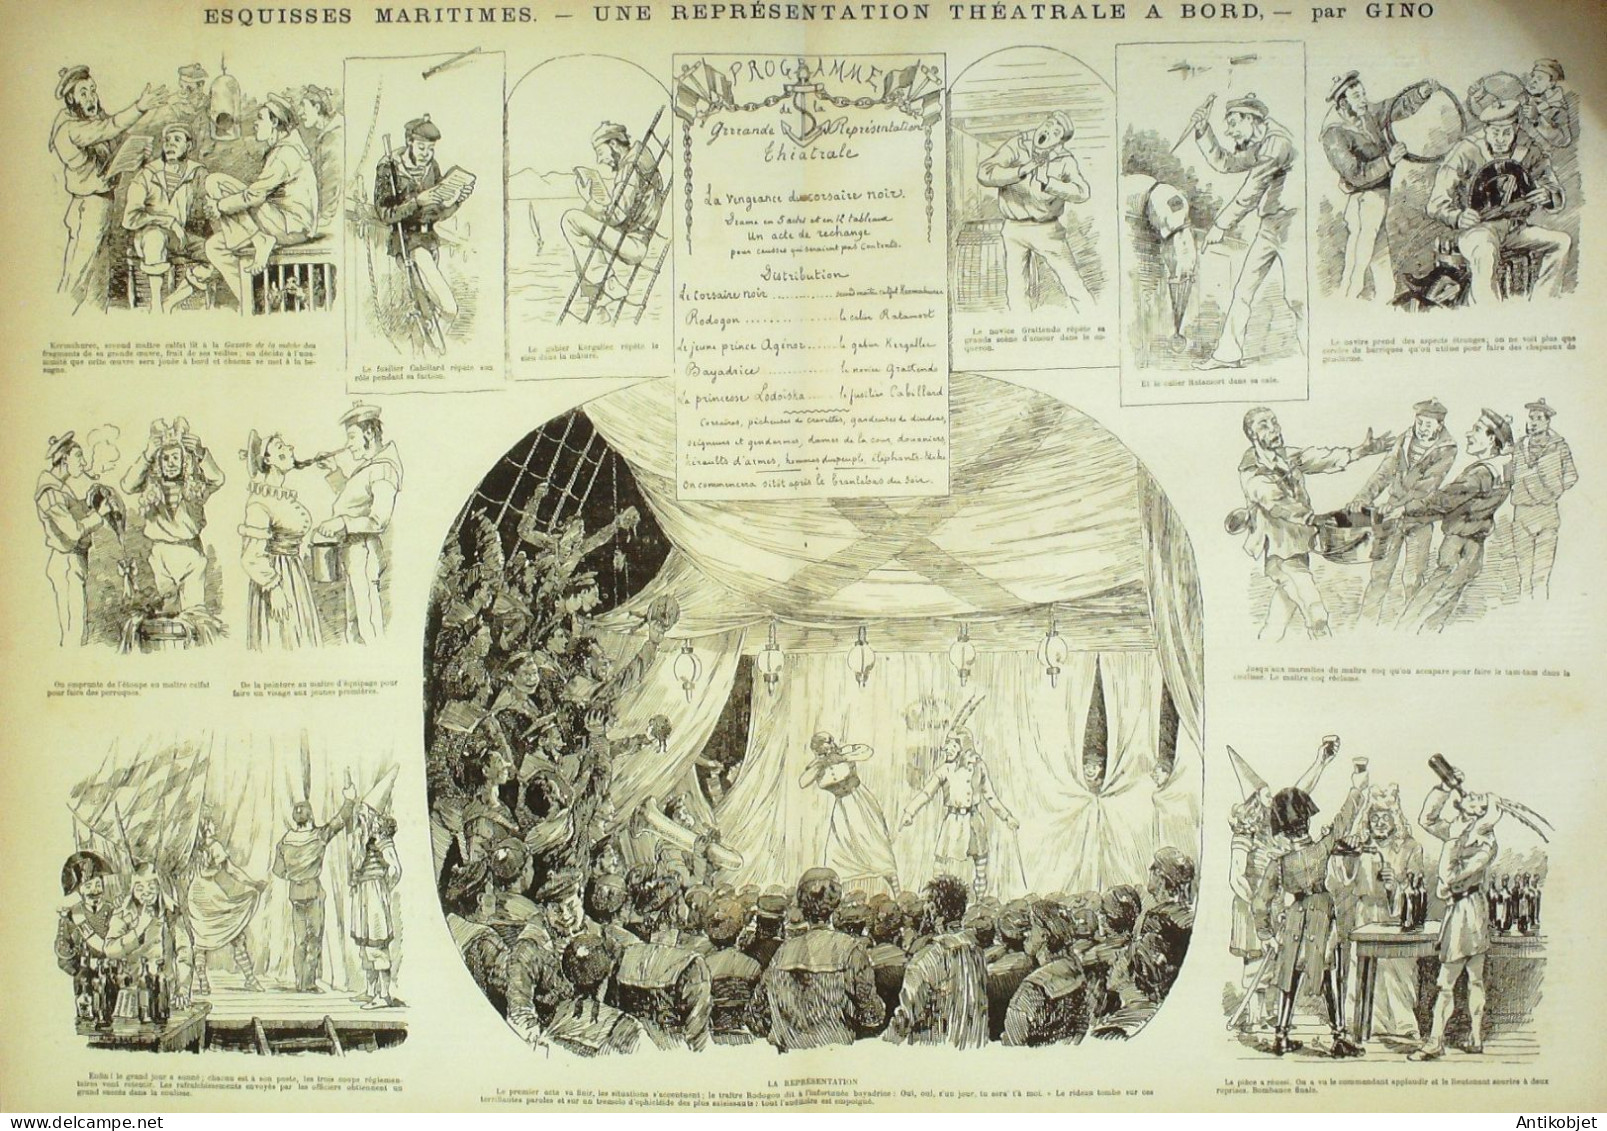 ESQUISSES MARITIMES. — UNE REPRÉSENTATION THÉATRALE A BORD, — par GINO
Kermaburec, second maître calfat lit à la Gazette de la mèche des
fragments de sa grande œuvre, fruit de ses veilles; on décide à l'una-
nimité que cette œuvre sera jouée à bord et chacun se met à la be-
sogne.
Le fusilier Cabillard répète son
rôle pendant sa faction.
Le gabier Kergallec répète le
sien dans la mâture.
PROGRAMME
de la
Grrrande Représentation
Théatrale
La vengeance du corsaire noir.
Drame en 5 actes et en 12 tableaux
Un acte de rechange
pour ceusses qui seraient pas contents.
Distribution
Le corsaire noir ............ second maître calfat Kermaburec
Rodogon ............ le calier Ratamort
Le jeune prince Agénor ...... le gabier Kergallec
Bayadère ............ le novice Grattendo
La princesse Lodoïska ...... le fusilier Cabillard
Corsaires, pêcheuses de crevettes, gardeuses de dindons,
seigneurs et gendarmes, dames de la cour, douaniers,
hérauts d'armes, hommes du peuple, éléphants
On commencera sitôt après le branlebas du soir.
Le novice Grattendo répète sa
grande scène d'amour dans le co-
queron.
Et le calier Ratamort dans sa cale.
Le navire prend des aspects étranges; on ne voit plus que
cercles de barriques qu'on utilise pour faire des chapeaux de
gendarme.
On emprunte de l'étoupe au maître calfat
pour faire des perruques.
De la peinture au maître d'équipage pour
faire un visage aux jeunes premières.
Jusqu'aux marmites du maître coq qu'on accapare pour faire le tam-tam dans la
coulisse. Le maître coq réclame.
Enfin! le grand jour a sonné; chacun est à son poste, les trois coups réglemen-
taires vont retentir. Les rafraîchissements envoyés par les officiers obtiennent un
grand succès dans la coulisse.
LA REPRÉSENTATION
Le premier acte va finir, les situations s'accentuent; le traître Rodogon dit à l'infortunée bayadère : Oui, oui, s'un jour, tu sera t'à moi. » Le rideau tombe sur ces
terrifiantes paroles et sur un tremolo d'ophicléide des plus saisissants : tout l'auditoire est empoigné.
La pièce a réussi. On a vu le commandant applaudir et le lieutenant sourire à deux
reprises. Bombance finale.
Antikobjet
www.delcampe.net